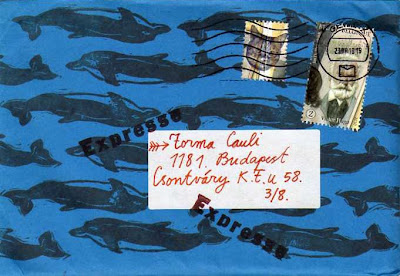 Expresso
Torma Cauli
1181. Budapest
Csontváry K. T. u 58.
3/8.
Expresso